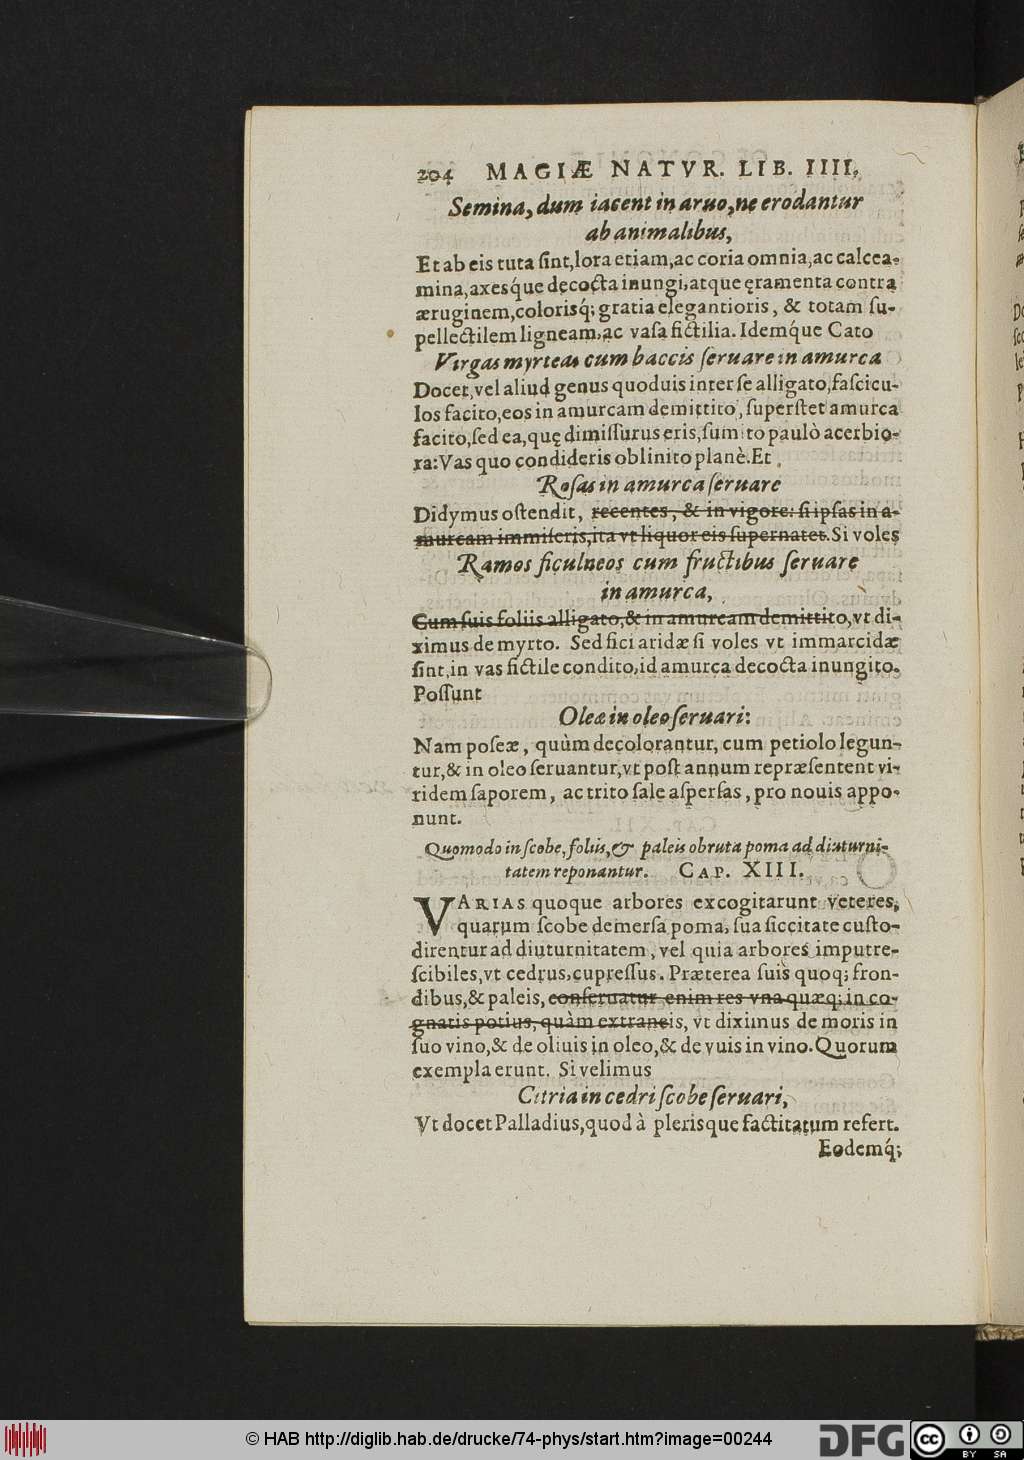 204 MAGIÆ NATVR. LIB. IIII.
Semina, dum iacent in aruo, ne erodantur
ab animalibus,
Et ab eis tuta ſint, lora etiam, ac coria omnia, ac calcea-
mina, axesq́ue decocta inungi, atque ęramenta contra
æruginem, colorisq́; gratia elegantioris, & totam ſu-
pellectilem ligneam, ac vaſa fictilia. Idemq́ue Cato
Virgas myrteas cum baccis ſeruare in amurca
Docet, vel aliud genus quoduis inter ſe alligato, faſcicu-
los facito, eos in amurcam demittito, ſuperſtet amurca
facito, ſed ea, quę dimiſſurus eris, ſumito paulò acerbio-
ra: Vas quo condideris oblinito planè. Et
Roſas in amurca ſeruare
Didymus oſtendit, recentes, & in vigore: ſi ipſas in a-
murcam immiſeris, ita vt liquor eis ſupernatet. Si voles
Ramos ficulneos cum fructibus ſeruare
in amurca,
Cum ſuis foliis alligato, & in amurcam demittito, vt di-
ximus de myrto. Sed fici aridæ ſi voles vt immarcidæ
ſint, in vas fictile condito, id amurca decocta inungito.
Poſſunt
Oleæ in oleo ſeruari:
Nam poſeæ, quùm decolorantur, cum petiolo legun-
tur, & in oleo ſeruantur, vt poſt annum repræſentent vi-
ridem ſaporem, ac trito ſale aſperſas, pro nouis appo-
nunt.
Quomodo in ſcobe, foliis, & paleis obruta poma ad diuturni-
tatem reponantur. CAP. XIII.
VARIAS quoque arbores excogitarunt veteres,
quarum ſcobe demerſa poma, ſua ſiccitate cuſto-
direntur ad diuturnitatem, vel quia arbores imputre-
ſcibiles, vt cedrus, cupreſſus. Præterea ſuis quoq; fron-
dibus, & paleis, conſeruatur enim res vnaquæq; in co-
gnatis potius, quàm extraneis, vt diximus de moris in
ſuo vino, & de oliuis in oleo, & de vuis in vino. Quorum
exempla erunt. Si velimus
Citria in cedri ſcobe ſeruari,
Vt docet Palladius, quod à plerisque factitatum refert.
Eodemq́;
© HAB http://diglib.hab.de/drucke/74-phys/start.htm?image=00244
DFG
cc BY SA